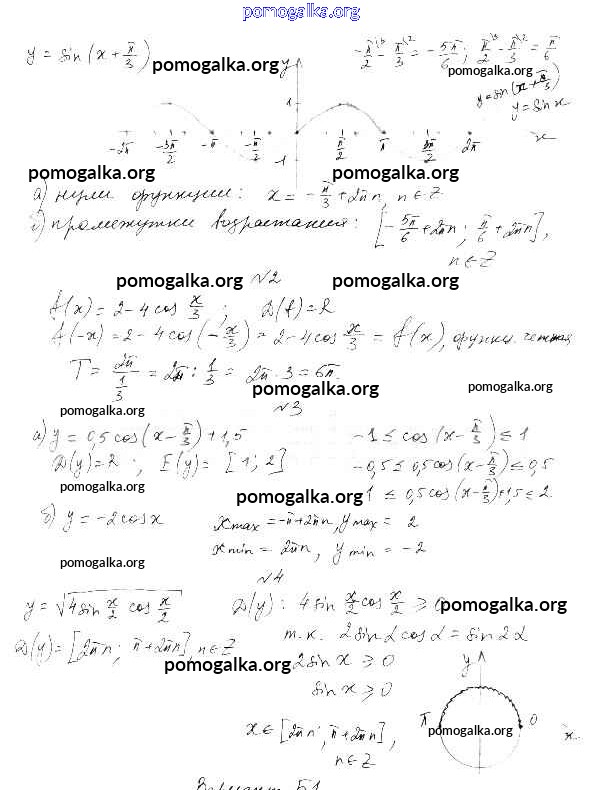 pomogalka.org
y = sin(x + π/3)
-π/2 - π/3 = -5π/6; π/2 - π/3 = π/6
pomogalka.org
y
pomogalka.org
y = sin(x + π/3)
y = sin x
1
x
-2π -3π/2 -π -π/2 π/2 π 3π/2 2π
-1
pomogalka.org pomogalka.org
а) нули функции: x = -π/3 + 2πn, n ∈ Z
б) промежутки возрастания: [-5π/6 + 2πn; π/6 + 2πn],
n ∈ Z
pomogalka.org №2 pomogalka.org
f(x) = 2 - 4cos x/3; D(f) = R
f(-x) = 2 - 4cos(-x/3) = 2 - 4cos x/3 = f(x), функц. четная
T = 2π/(1/3) = 2π : 1/3 = 2π · 3 = 6π.
pomogalka.org pomogalka.org
№3
pomogalka.org
а) y = 0,5cos(x - π/3) + 1,5 -1 ≤ cos(x - π/3) ≤ 1
D(y) = R; E(y) = [1; 2] -0,5 ≤ 0,5cos(x - π/3) ≤ 0,5
pomogalka.org pomogalka.org 1 ≤ 0,5cos(x - π/3) + 1,5 ≤ 2
б) y = -2cos x xmax = -π + 2πn, ymax = 2
xmin = 2πn, ymin = -2
pomogalka.org
№4
y = √(4sin x/2 cos x/2) D(y): 4sin x/2 cos x/2 ≥ 0
pomogalka.org
D(y) = [2πn; π + 2πn], n ∈ Z т.к. 2sinα cosα = sin2α
pomogalka.org 2sin x ≥ 0
y
sin x ≥ 0
π 0
pomogalka.org
x
x ∈ [2πn; π + 2πn],
n ∈ Z
Вариант Б1